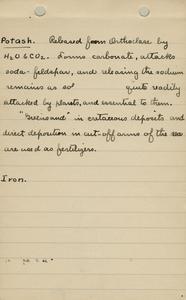 Potash. Released from Orthoclase by
H2O & CO2. Forms carbonate, attacks
soda-feldspar, and releasing the sodium
remains as sol quite readily
attacked by plants, and essential to them.
"Greensand" in cretaceous deposits and
direct deposition in cut-off arms of the sea
are used as fertilizers.
Iron.